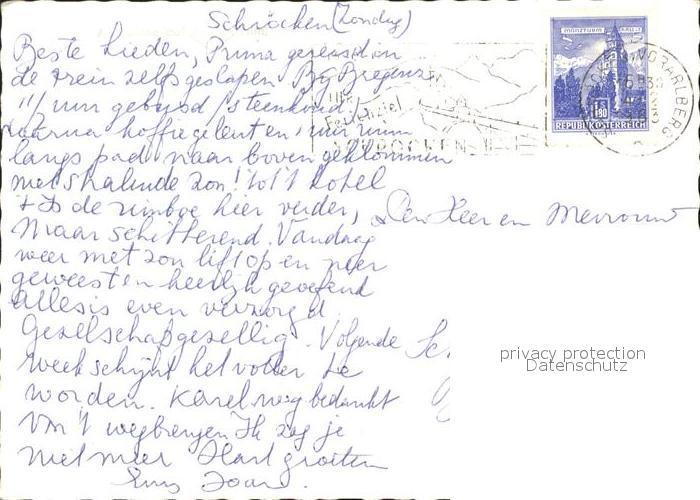 Schröcken (Zondag)
Beste Lieden, Prima gereisd in
de trein zelfs geslapen. Bij Bregenz
1½ uur gebusd / steenkoud /
daarna koffie geleut en, uur
langs pad naar boven geklommen
met stralende zon! tot 't hotel
't Is de rimboe hier verder,
Maar schitterend. Vandaag
weer met zon lift op en neer
geweest en heerlijk geoefend
alles is even verzorgd.
Gezelschap gezellig. Volgende
week schijnt het voller te
worden. Karel nog bedankt
Vm 't wegbrengen Ik zag je
niet meer Hart. groeten
Joan.
MÜNZTURM
1.80
REPUBLIK ÖSTERREICH
VORARLBERG
Ihr
Ferienziel
SCHRÖCKEN
Den Heer en Mevrouw
privacy protection
Datenschutz